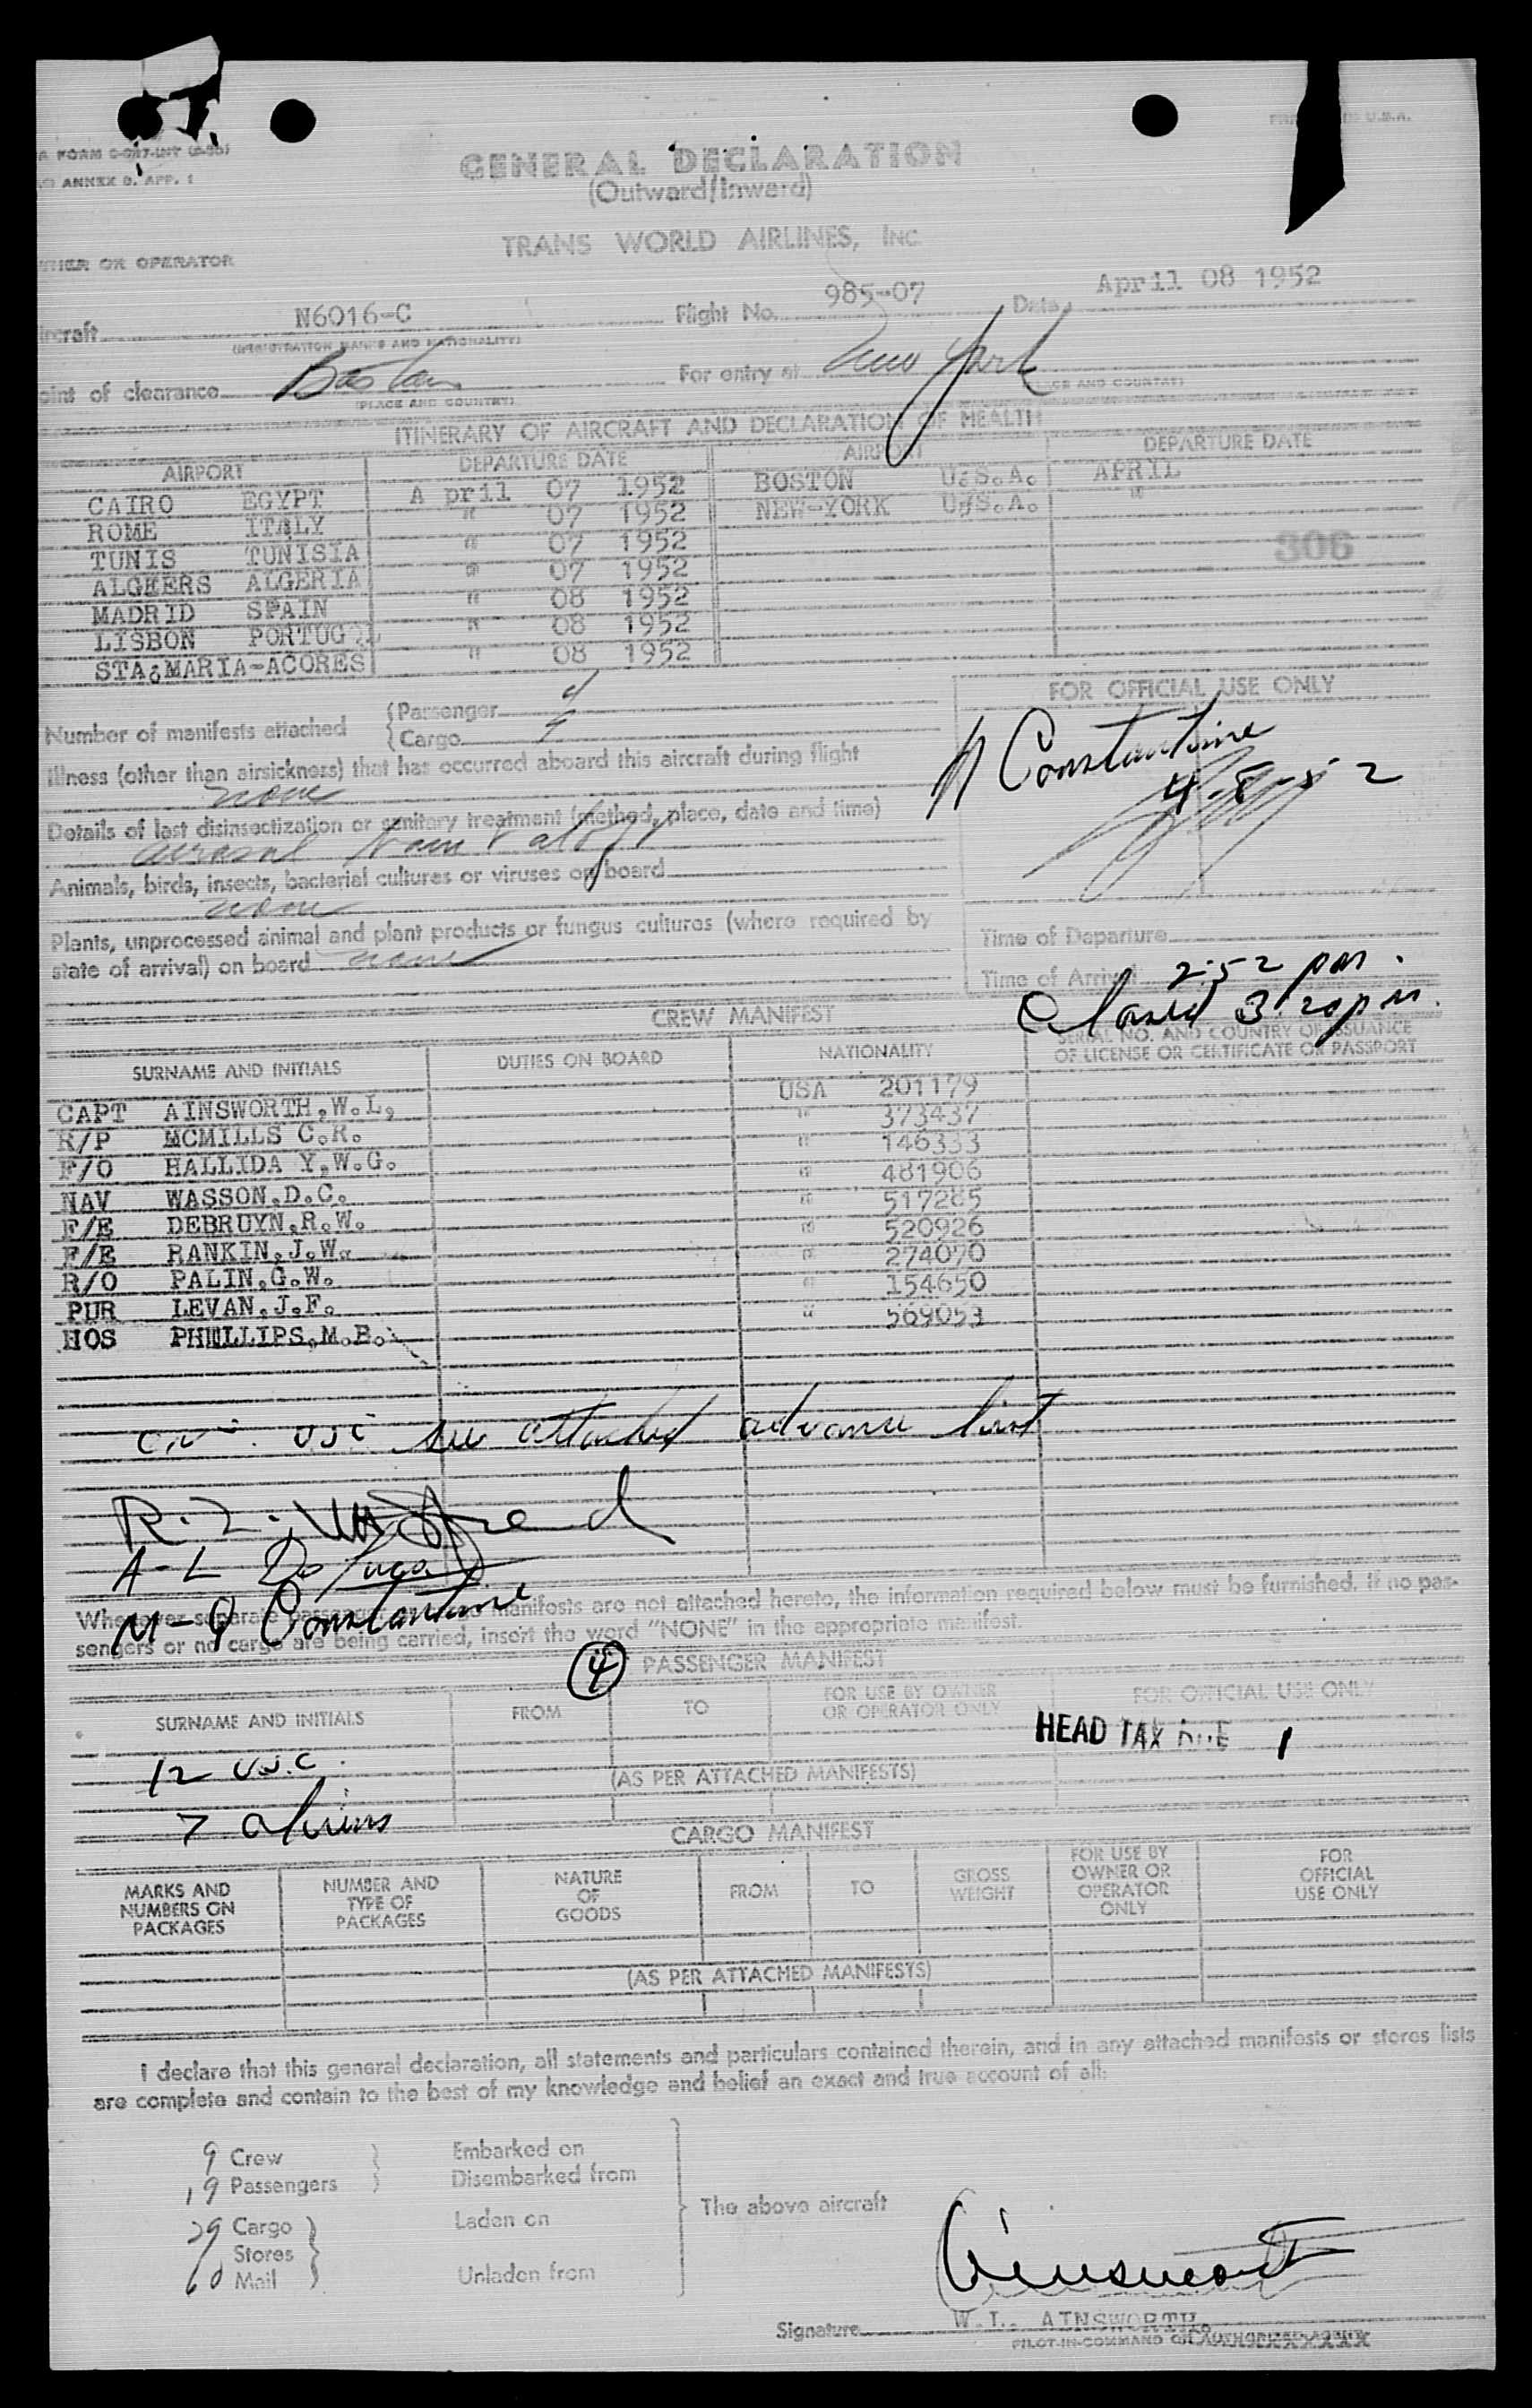 A FORM C-087-INT
ANNEX 9, APP. 1
PRINTED IN U.S.A.
GENERAL DECLARATION
(Outward/Inward)
TRANS WORLD AIRLINES, INC.
OWNER OR OPERATOR
Aircraft N6016-C Flight No. 985-07 Date April 08 1952
(REGISTRATION MARKS AND NATIONALITY)
Point of clearance Boston For entry at New York
(PLACE AND COUNTRY) (PLACE AND COUNTRY)
ITINERARY OF AIRCRAFT AND DECLARATION OF HEALTH
AIRPORT DEPARTURE DATE AIRPORT DEPARTURE DATE
CAIRO EGYPT A pril 07 1952 BOSTON U.S.A. APRIL
ROME ITALY " 07 1952 NEW-YORK U.S.A. "
TUNIS TUNISIA " 07 1952
ALGEERS ALGERIA " 07 1952
306
MADRID SPAIN " 08 1952
LISBON PORTUGAL " 08 1952
STA.MARIA-ACORES " 08 1952
FOR OFFICIAL USE ONLY
Number of manifests attached
Passenger
Cargo
Constantine
4-8-52
Illness (other than airsickness) that has occurred aboard this aircraft during flight
none
Details of last disinsectization or sanitary treatment (method, place, date and time)
aerosol
Animals, birds, insects, bacterial cultures or viruses on board
none
Plants, unprocessed animal and plant products or fungus cultures (where required by
state of arrival) on board none
Time of Departure
Time of Arrival 2:52 pm.
Closed 3:20pm.
CREW MANIFEST
SURNAME AND INITIALS DUTIES ON BOARD NATIONALITY SERIAL NO. AND COUNTRY OF ISSUANCE
OF LICENSE OR CERTIFICATE OR PASSPORT
CAPT AINSWORTH,W.L, USA 201179
R/P MCMILLS C.R. " 373437
F/O HALLIDA Y,W.G. " 146333
NAV WASSON,D.C. " 481906
F/E DEBRUYN,R.W. " 517285
F/E RANKIN,J.W. " 520926
R/O PALIN,G.W. " 274070
PUR LEVAN,J.F. " 154650
HOS PHILLIPS,M.B. " 569053
USC see attached advance list
Constantine
Whenever separate passenger or cargo manifests are not attached hereto, the information required below must be furnished. If no pas-
sengers or no cargo are being carried, insert the word "NONE" in the appropriate manifest.
4 PASSENGER MANIFEST
SURNAME AND INITIALS FROM TO FOR USE BY OWNER
OR OPERATOR ONLY FOR OFFICIAL USE ONLY
HEAD TAX DUE 1
12 U.S.C.
(AS PER ATTACHED MANIFESTS)
7 aliens
CARGO MANIFEST
MARKS AND
NUMBERS ON
PACKAGES
NUMBER AND
TYPE OF
PACKAGES
NATURE
OF
GOODS
FROM TO
GROSS
WEIGHT
FOR USE BY
OWNER OR
OPERATOR
ONLY
FOR
OFFICIAL
USE ONLY
(AS PER ATTACHED MANIFESTS)
I declare that this general declaration, all statements and particulars contained therein, and in any attached manifests or stores lists
are complete and contain to the best of my knowledge and belief an exact and true account of all:
9 Crew Embarked on
19 Passengers Disembarked from
29 Cargo Laden on The above aircraft
Stores
Mail Unladen from
Ainsworth
Signature W.L. AINSWORTH
PILOT-IN-COMMAND OR AUTHORIZED AGENT